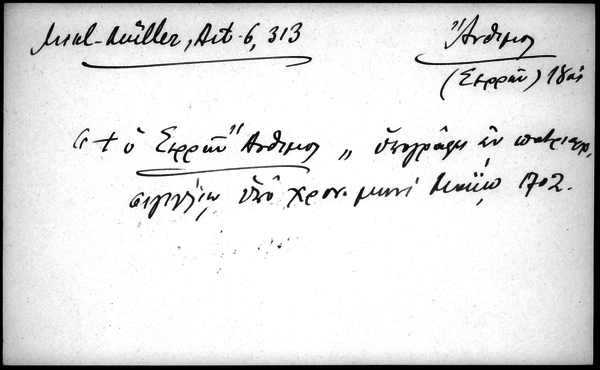 Mikl-Müller, Act. 6, 313
Ἄνθιμος
(Σερρῶν) 18ος
« + ὁ Σερρῶν Ἄνθιμος „ ὑπογράφει ἐν πατριαρχ.
σιγιλλίῳ ὑπὸ χρον. μηνὶ Μαΐῳ 1702.